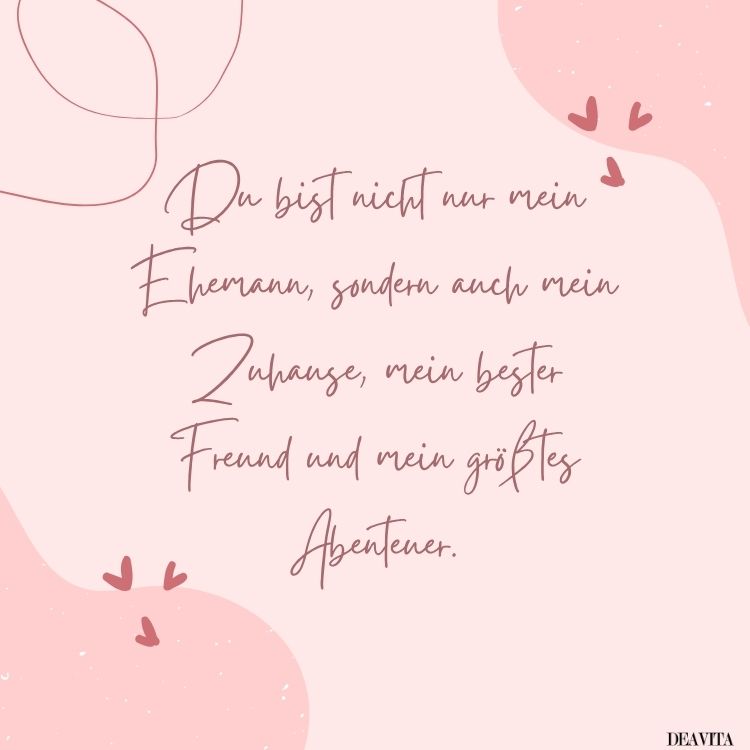 Du bist nicht nur mein
Ehemann, sondern auch mein
Zuhause, mein bester
Freund und mein größtes
Abenteuer.
DEAVITA